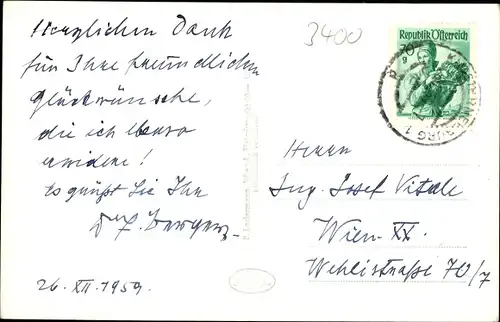 Herzlichen Dank
für Ihre freundlichen
Glückwünsche,
die ich ebenso
erwidere!
Es grüßt Sie Ihr
26. XII. 1959.
3400
Republik Österreich
70
g
Herrn
Ing. Josef Vitale
Wien XX.
Wehlistraße 70/7